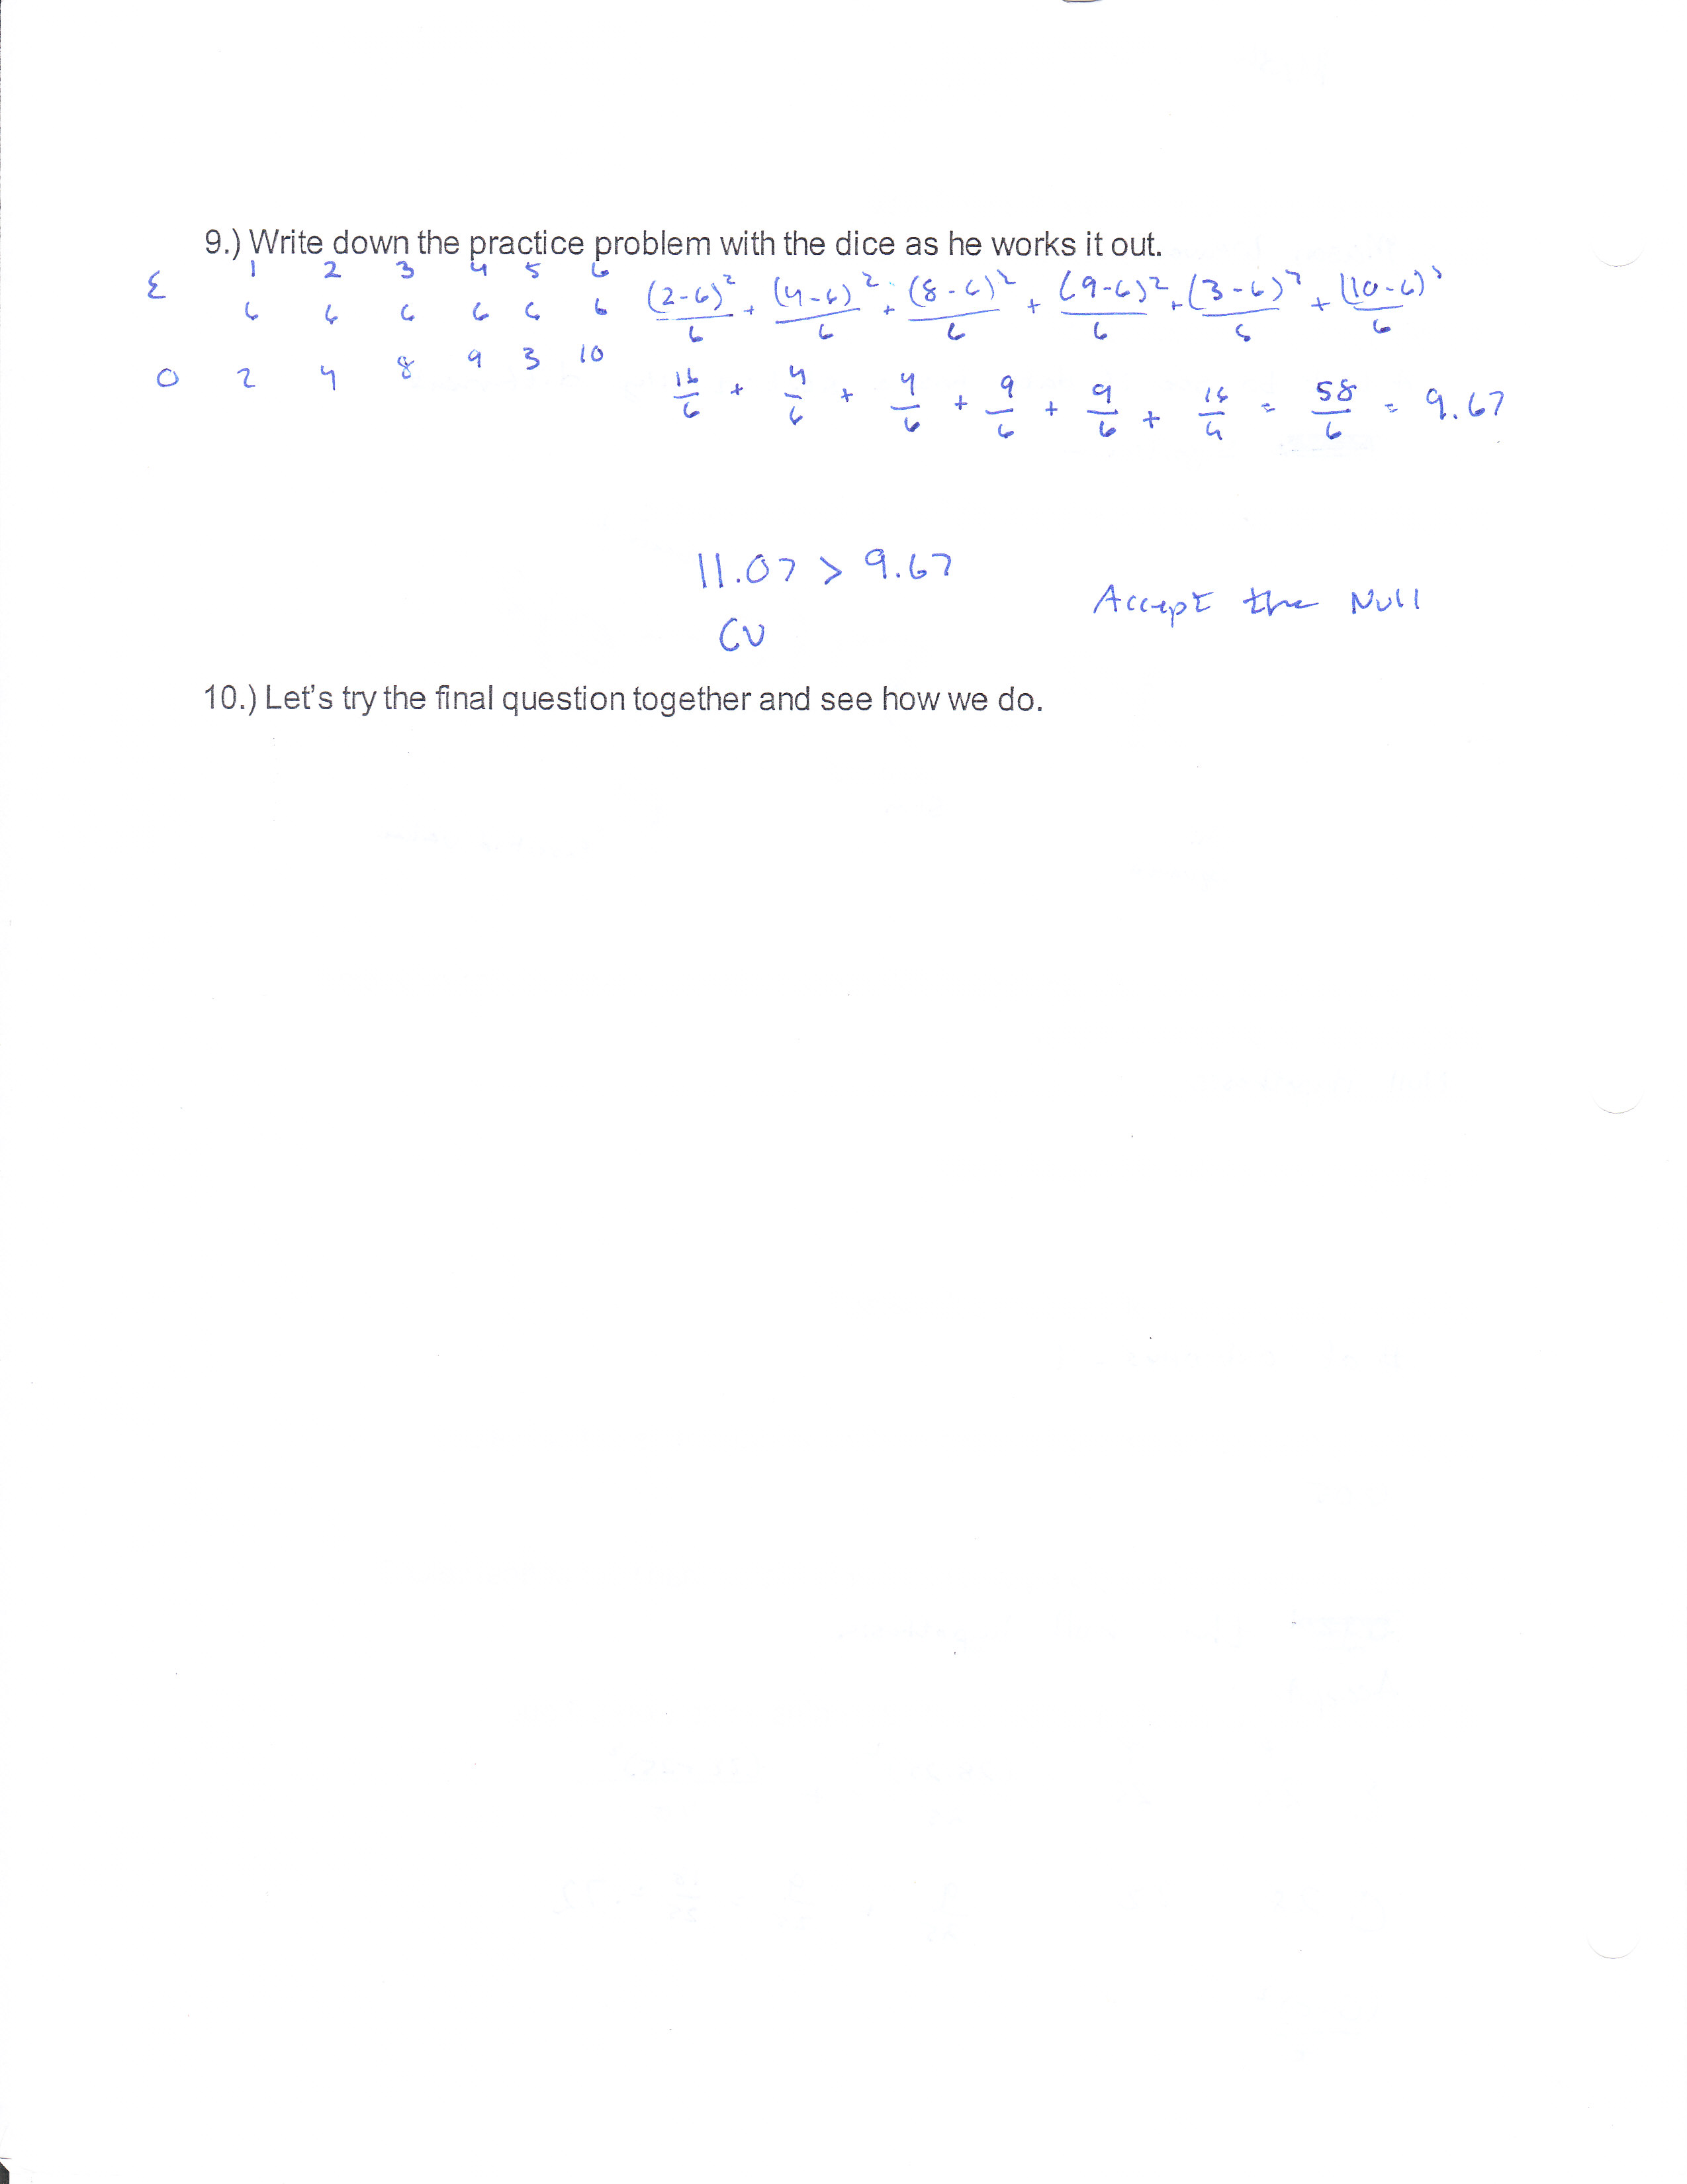 9.) Write down the practice problem with the dice as he works it out.
1 2 3 4 5 6
E 6 6 6 6 6 6 (2-6)²/6 + (4-6)²/6 + (8-6)²/6 + (9-6)²/6 + (3-6)²/6 + (10-6)²/6
O 2 4 8 9 3 10
16/6 + 4/6 + 4/6 + 9/6 + 9/6 + 16/6 = 58/6 = 9.67
11.07 > 9.67
CV
Accept the Null
10.) Let's try the final question together and see how we do.